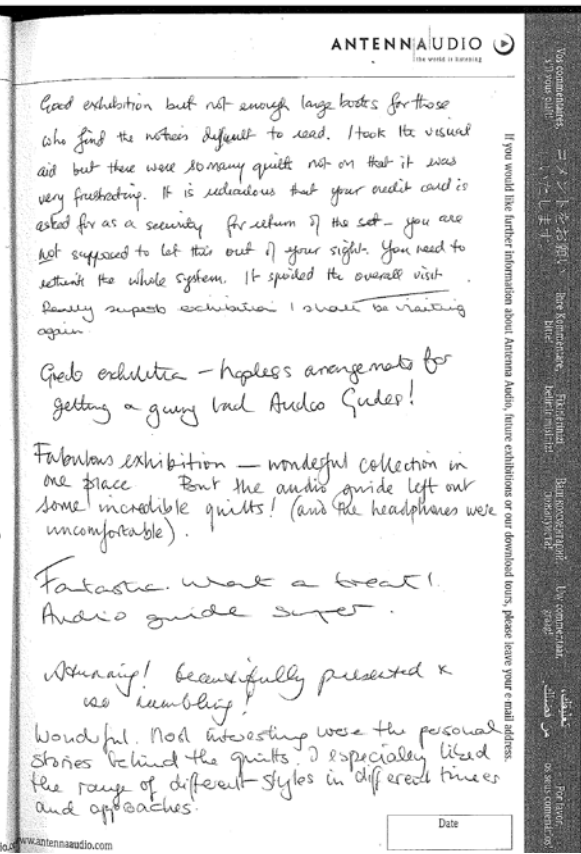 ANTENNAAUDIO
the world is listening
Good exhibition but not enough large books for those
who find the notices difficult to read. I took the visual
aid but there were so many quilts not on that it was
very frustrating. It is rediculous that your credit card is
asked for as a security for return of the set – you are
not supposed to let this out of your sight. You need to
rethink the whole system. It spoiled the overall visit.
Really superb exhibition I shall be visiting
again.
exhibition – hopeless arrangements for
getting a giving back Audio Guides!
Fabulous exhibition — wonderful collection in
one place But the audio guide left out
some incredible quilts! (and the headphones were
uncomfortable).
Fantastic. What a treat!
Audio guide super.
Stunning! beautifully presented &
so humbling!
Wonderful. Most interesting were the personal
stories behind the quilts. I especially liked
the range of different styles in different times
and approaches.
Date
www.antennaaudio.com
If you would like further information about Antenna Audio, future exhibitions or our download tours, please leave your e-mail address.
Vos commentaires,
s'il vous plaît!
コメントをお願い
いたします
Ihre Kommentare,
bitte!
Fikirlerinizi
belirtir misiniz!
Ваш комментарий,
пожалуйста!
Uw commentaar,
graag!
تعليقك،
من فضلك
Por favor,
os seus comentários